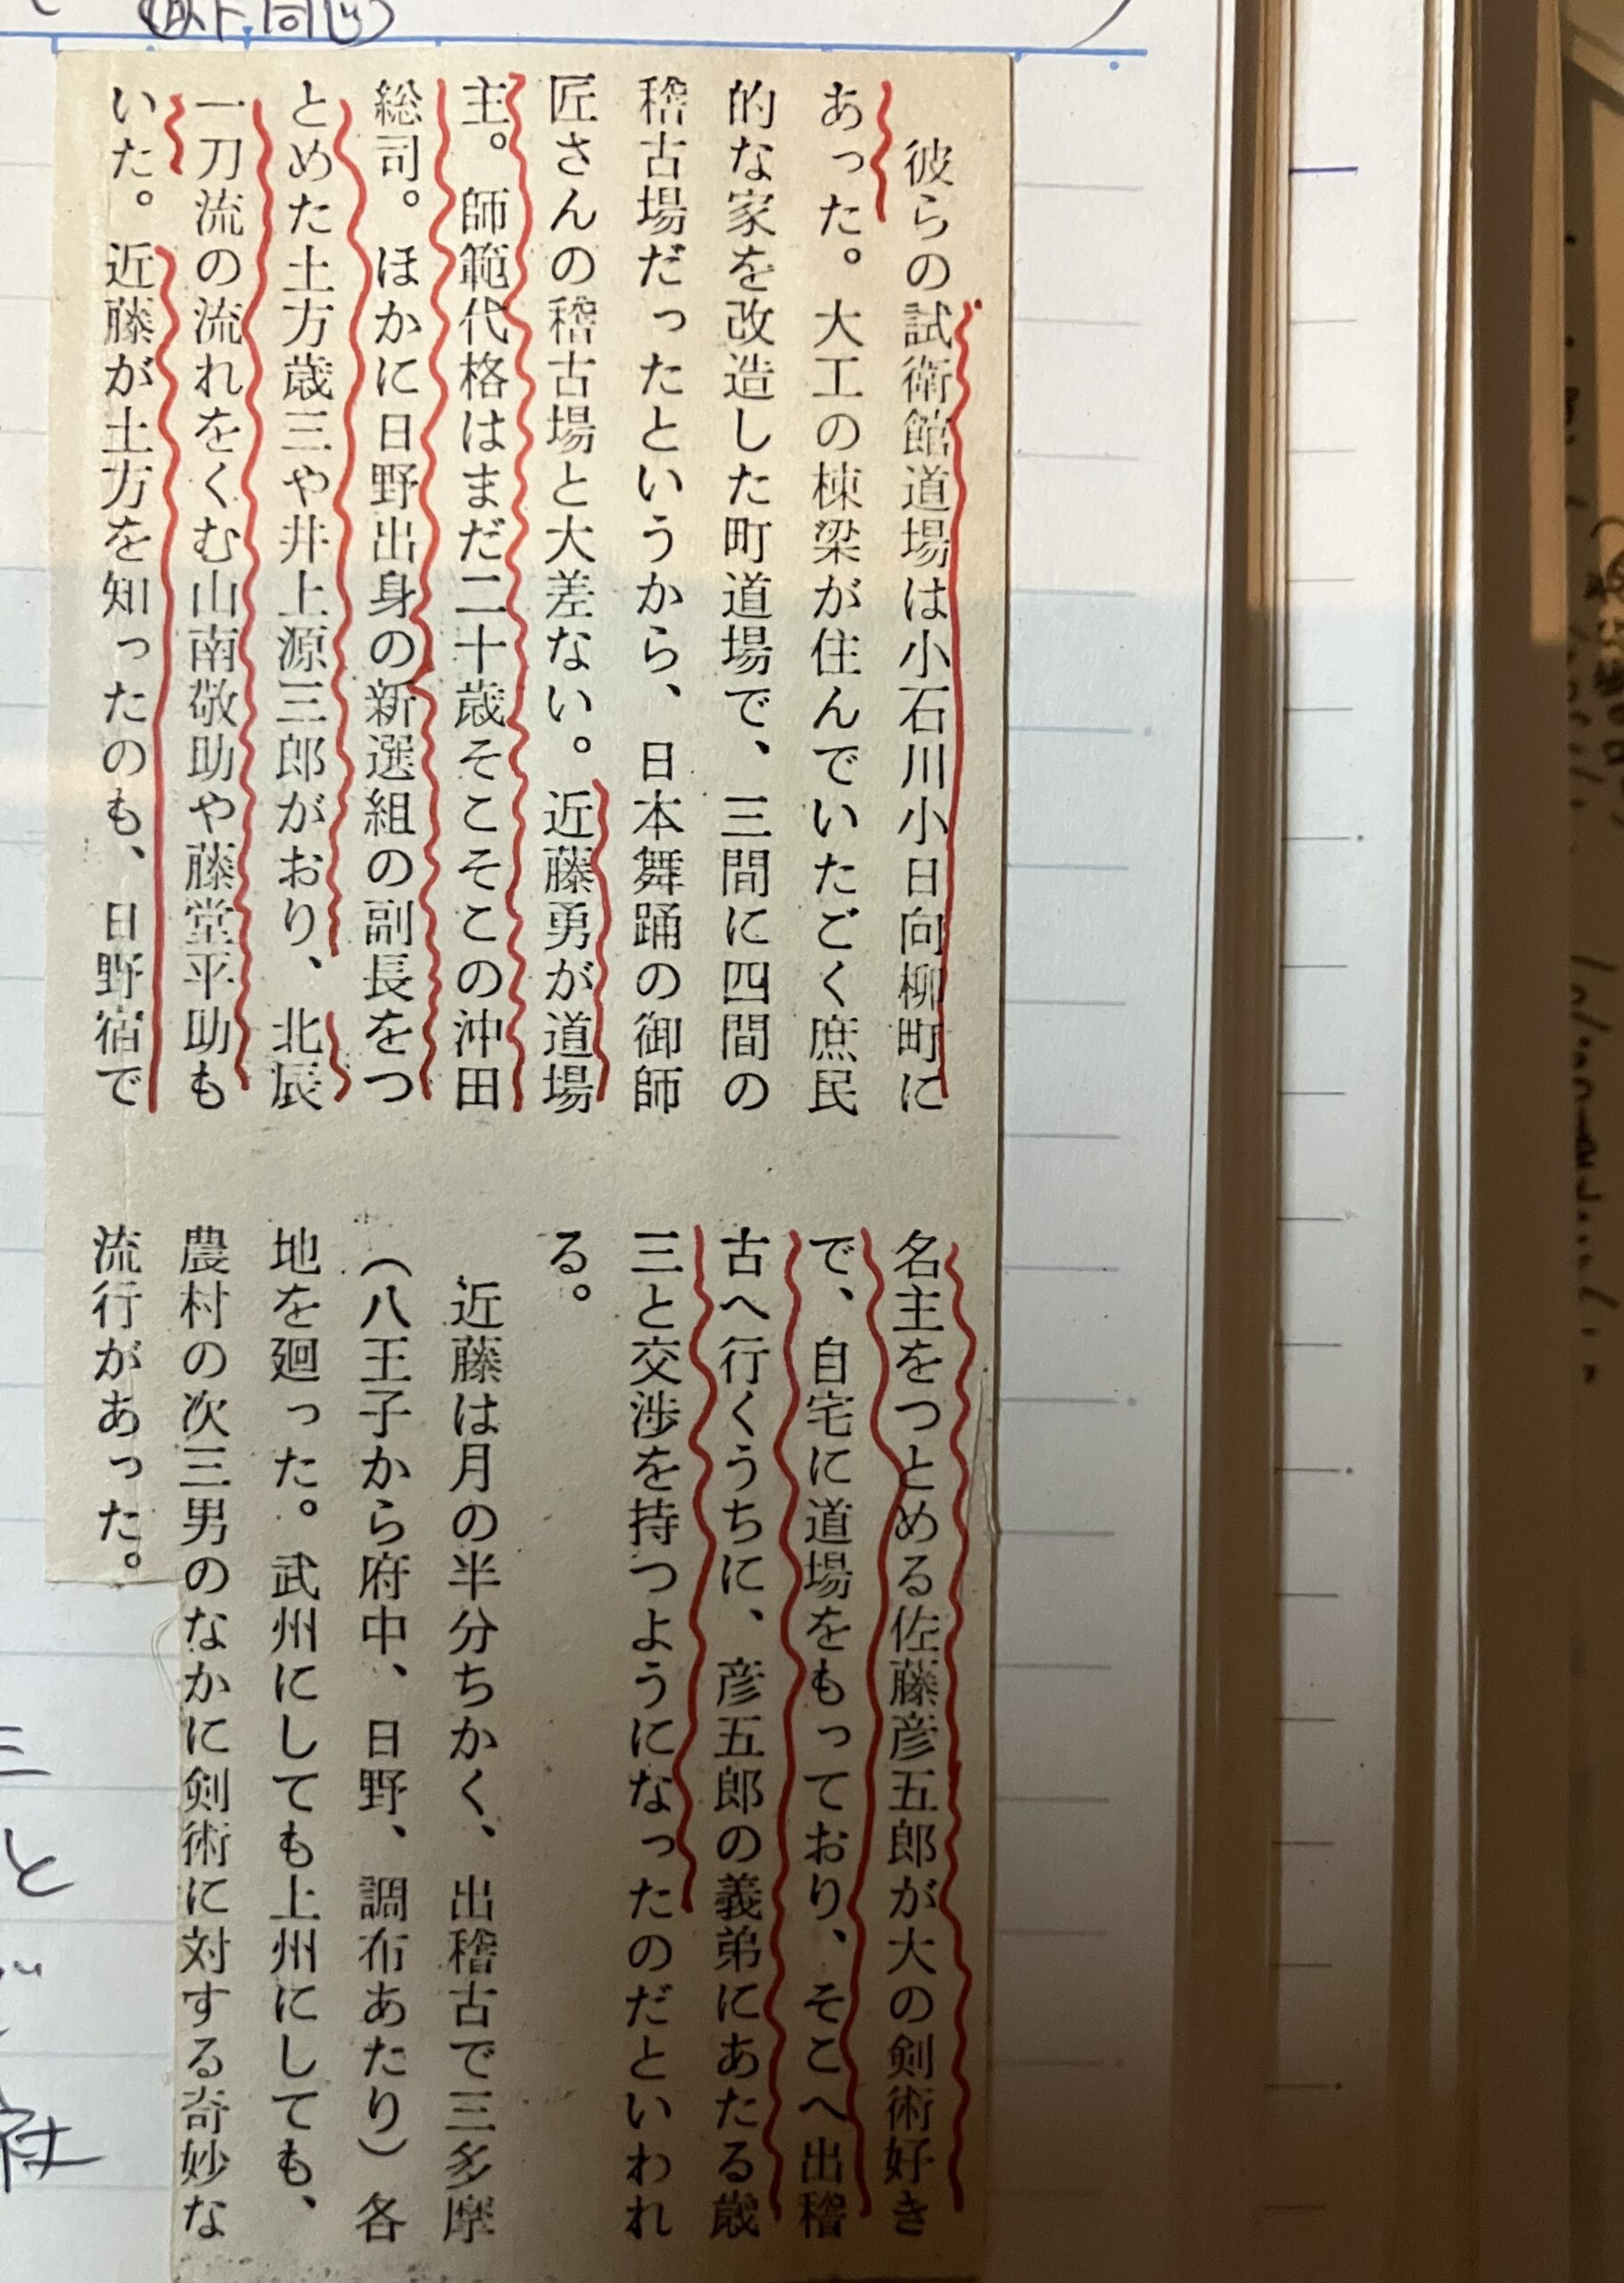 彼らの試衛館道場は小石川小日向柳町に
あった。大工の棟梁が住んでいたごく庶民
的な家を改造した町道場で、三間に四間の
稽古場だったというから、日本舞踊の御師
匠さんの稽古場と大差ない。近藤勇が道場
主。師範代格はまだ二十歳そこそこの沖田
総司。ほかに日野出身の新選組の副長をつ
とめた土方歳三や井上源三郎がおり、北辰
一刀流の流れをくむ山南敬助や藤堂平助も
いた。近藤が土方を知ったのも、日野宿で
名主をつとめる佐藤彦五郎が大の剣術好き
で、自宅に道場をもっており、そこへ出稽
古へ行くうちに、彦五郎の義弟にあたる歳
三と交渉を持つようになったのだといわれ
る。
近藤は月の半分ちかく、出稽古で三多摩
（八王子から府中、日野、調布あたり）各
地を廻った。武州にしても上州にしても、
農村の次三男のなかに剣術に対する奇妙な
流行があった。
三
と
社